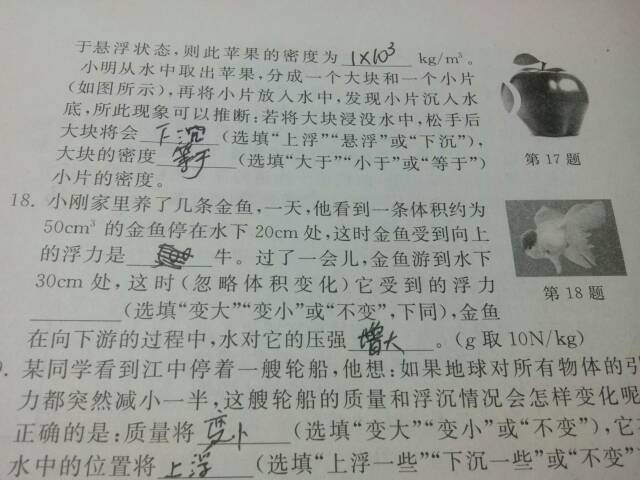 于悬浮状态,则此苹果的密度为 1×10³ kg/m³。
小明从水中取出苹果,分成一个大块和一个小片
(如图所示),再将小片放入水中,发现小片沉入水
底,所此现象可以推断:若将大块浸没水中,松手后
大块将会 下沉 (选填“上浮”“悬浮”或“下沉”),
大块的密度 等于 (选填“大于”“小于”或“等于”)
小片的密度。
第17题
18. 小刚家里养了几条金鱼,一天,他看到一条体积约为
50cm³ 的金鱼停在水下 20cm 处,这时金鱼受到向上
的浮力是 牛。过了一会儿,金鱼游到水下
30cm 处,这时(忽略体积变化)它受到的浮力
(选填“变大”“变小”或“不变”,下同),金鱼
在向下游的过程中,水对它的压强 增大 。(g 取 10N/kg)
第18题
. 某同学看到江中停着一艘轮船,他想:如果地球对所有物体的引
力都突然减小一半,这艘轮船的质量和浮沉情况会怎样变化呢
正确的是:质量将 变小 (选填“变大”“变小”或“不变”),它
水中的位置将 上浮 (选填“上浮一些”“下沉一些”或“不变”